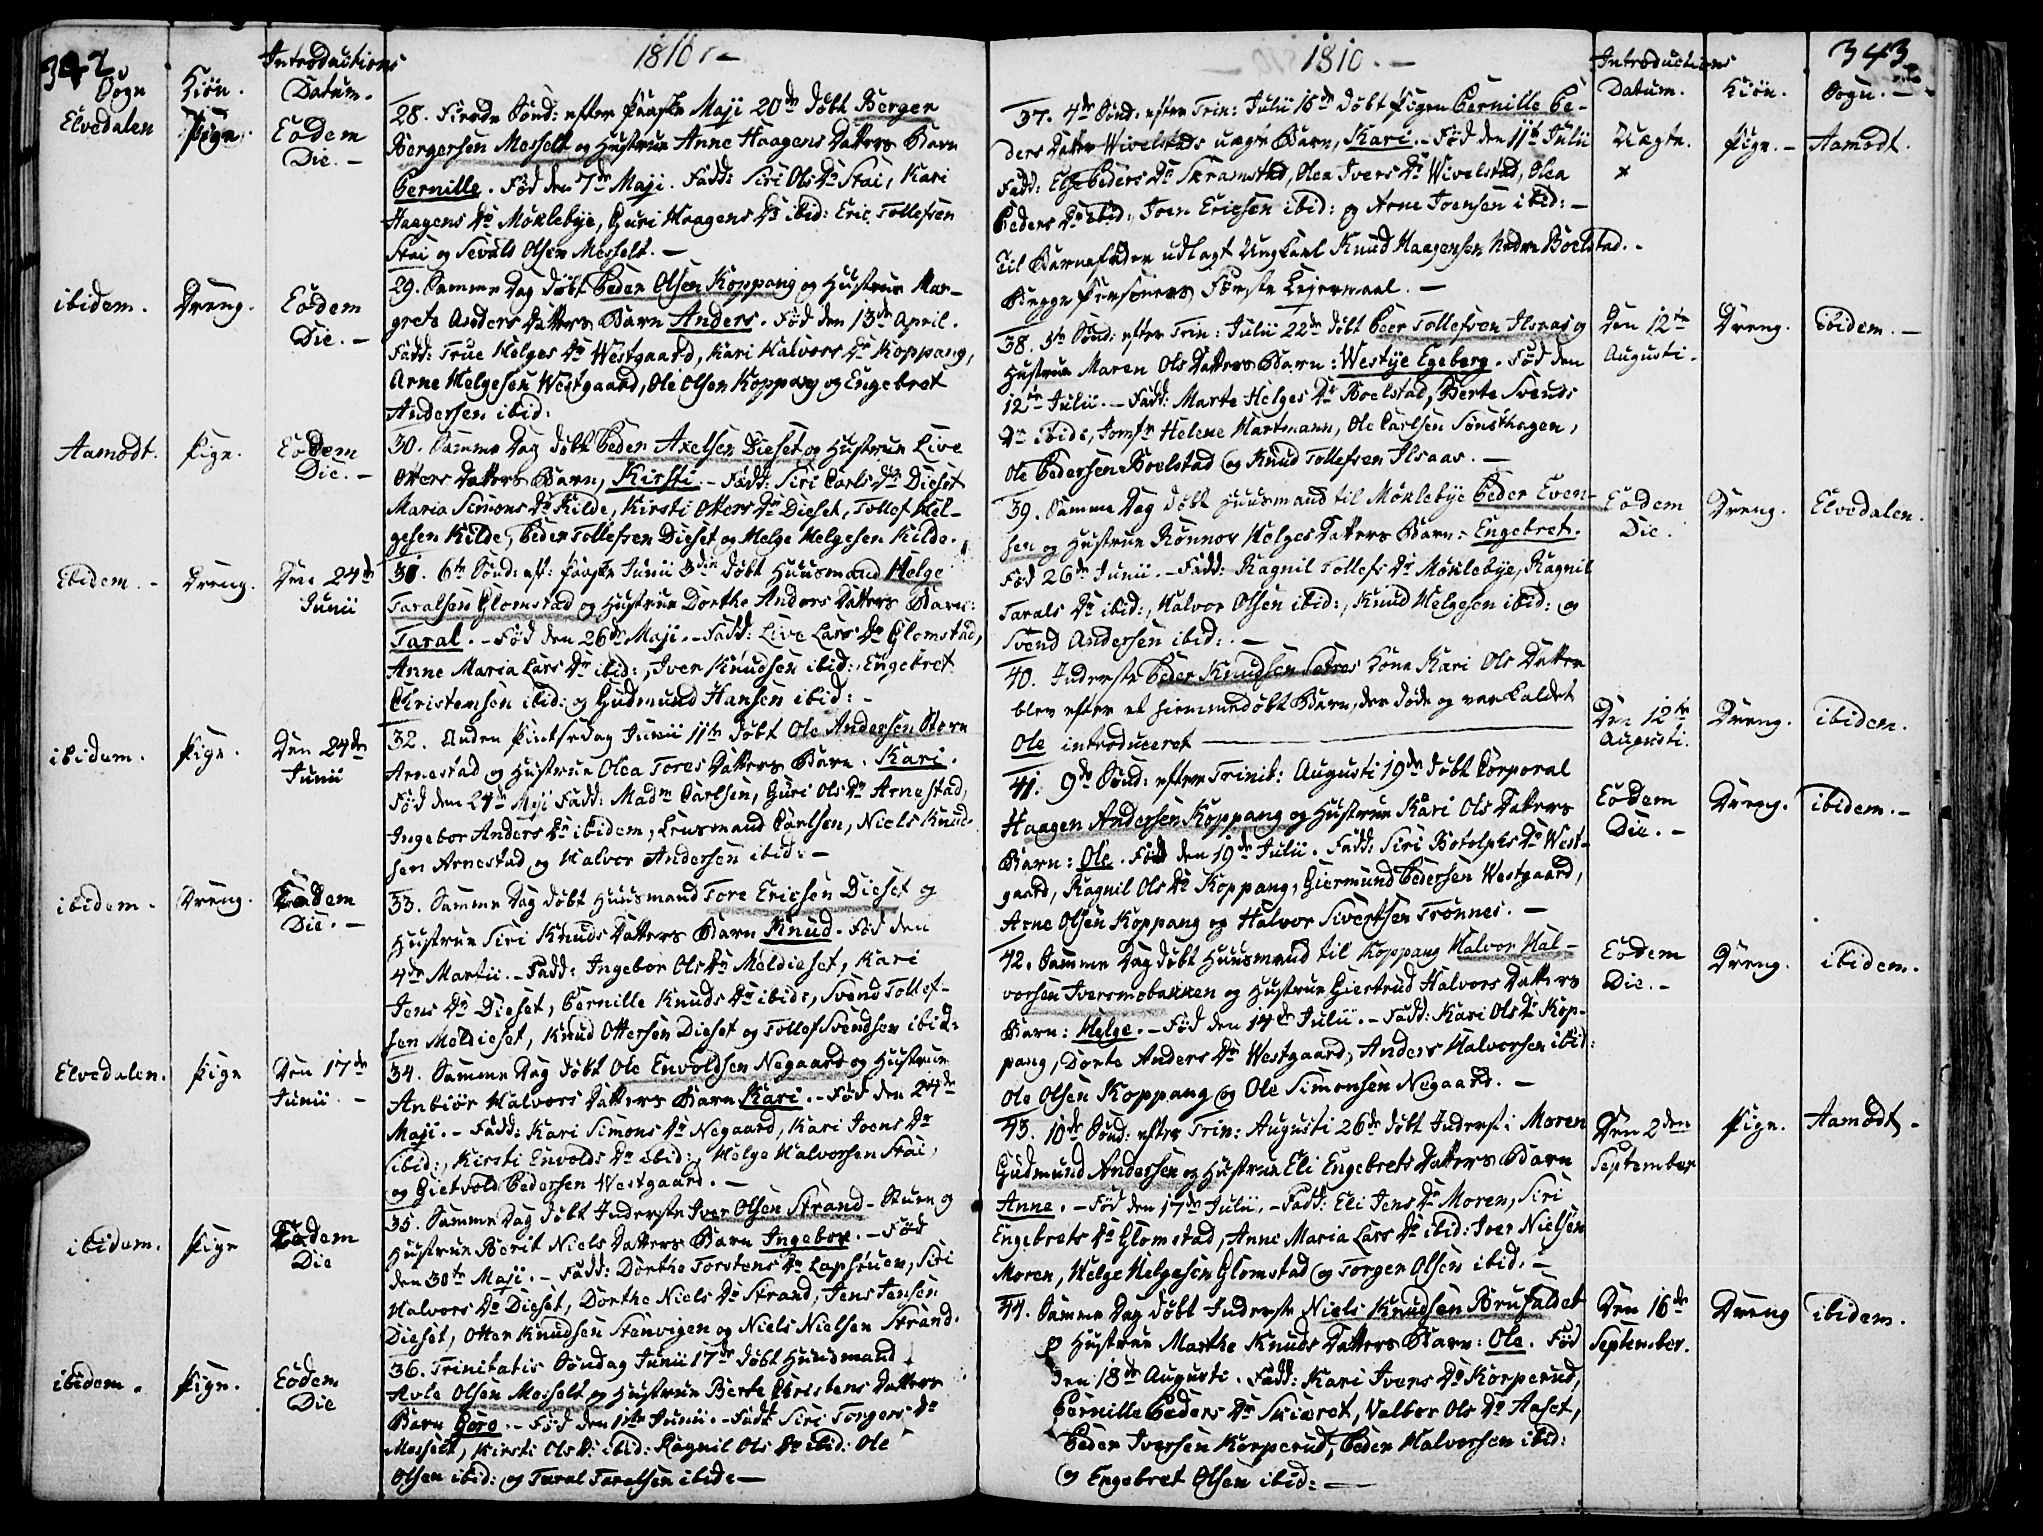 342.
1810. -
Sogn
Kiön.
Introductions
Datum.
Elvedalen
Pige.
Eodem
Die. -
28. Fierde Sönd: efter Paaske Maji 20de döbt Berger
Bergersen Messelt og Hustrue Anne Haagens Datters Barn
Pernille. Fød den 7de Maji. Fadd: Siri Ols Dr Stai, Kari
Haagens Dr Möklebye, Guri Haagens Dr ibid: Eric Tollefsen
Stai og Sevald Olsen Messelt. -
ibidem.
Dreng.
Eodem
Die. -
29. Samme Dag döbt Peder Olsen Koppang og Hustrue Mar-
grete Anders Datters Barn Anders. Fød den 13de April.
Fadd: True Helges Dr Westgaard, Kari Halvors Dr Koppang,
Arne Helgesen Westgaard, Ole Olsen Koppang og Engebret
Andersen ibid:
Aamodt.
Pige.
Eodem
Die. -
30. Samme Dag döbt Peder Axelsen Dieset og Hustrue Live
Otters Datters Barn, Kirsti. - Fadd: Siri Carls Dr Dieset
Maria Simons Dr Kilde, Kirsti Otters Dr Dieset, Tollef Hel-
gesen Kilde, Peder Tollefsen Dieset og Helge Helgesen Kilde.
Ebidem. -
Dreng.
Den 24de
Junii
31. 6te Sönd: eft: Paaske Junii 3die döbt Huusmand Helge
Taralsen Glomstad og Hustrue Dorthe Anders Datters Barn:
Taral. - Fød den 26de Maji. - Fadd: Live Lars Dr Glomstad,
Anne Maria Lars Dr ibid:, Iver Knudsen ibid:, Engebret
Christensen ibid: og Gudmund Hansen ibid: -
ibidem.
Pige.
Den 24de
Junii
32. Anden Pintsedag Junii 11te döbt Ole Andersen Stern
Arnestad og Hustrue Olea Tores Datters Barn. Kari.
Fød den 24de Maji Fadd: Madm Carlsen, Guri Ols Dr Arnestad,
Ingebor Anders Dr ibidem, Lensmand Carlsen, Niels Knud-
sen Arnestad og Halvor Andersen ibid: -
ibidem.
Dreng.
Eodem
Die. -
33. Samme Dag döbt Huusmand Tore Ericsen Dieset og
Hustrue Siri Knuds Datters Barn Knud. Fød den
4de Martii. - Fadd: Ingebor Ols Dr Meldieset, Kari
Jens Dr Dieset, Pernille Knuds Dr ibid:, Svend Tollef-
sen Meldieset, Knud Ottersen Dieset og Tollef Svendsen ibid:
Elvedalen.
Pige
Den 17de
Junii. -
34. Samme Dag döbt Ole Envoldsen Negaard og Hustrue
Anbiör Halvors Datters Barn Kari. - Fød den 24de
Maji. - Fadd: Kari Simons Dr Negaard, Kari Joens Dr
ibid:, Kirsti Envolds Dr ibid:, Helge Halvorsen Stai,
og Gietvold Pedersen Westgaard. -
ibidem.
Pige
Eodem
Die
35. Samme Dag döbt Inderste Iver Olsen Strand-Stuen og
Hustrue Berit Niels Datters Barn Ingebor. - Fød
den 30te Maji. - Fadd: Dorthe Torstens Dr Lapstuen, Siri
Halvors Dr Dieset, Dorthe Niels Dr Strand, Jens Jensen
Dieset, Otter Knudsen Stenvigen og Niels Nielsen Strand.
ibidem.
Pige.
Eodem
Die
36. Trinitatis Söndag Junii 17de döbt Huusmand
Avle Olsen Messelt og Hustrue Berte Christens Datters
Barn Goro. - Fød den 1ste Junii. - Fadd: Siri Tongers Dr
Messelt, Kirsti Ols Dr ibid: Ragnil Ols Dr ibid: Ole
Olsen ibid: og Taral Taralsen ibid: -
1810. -
Introductions
Datum.
Kiön.
343.
Sogn.
37. 4de Sönd: efter Trin: Julii 15de döbt Pigen Pernille Pe-
ders Datter Wivelstads uægte Barn, Kari. - Fød den 11te Julii
Fadd: Else Peders Dr Skramstad, Olea Ivers Dr Wivelstad, Olea
Peders Dr ibid:, Joen Ericsen ibid: og Arne Joensen ibid: -
Til Barnefader udlagt Ungkarl Knud Haagensen Nedre Bolstad. -
Begge Personers Første Leiermaal. -
Uægte.
x
Pige. -
Aamodt.
38. 5te Sönd: efter Trin: Julii 22de döbt Peer Tollefsen Ilsaas og
Hustrue Maren Ols Datters Barn: Westye Egeberg. Fød den
12te Julii. - Fadd: Marte Helges Dr Boelstad, Berte Svends
Dr ibid:, Jomfr Helene Hartmann, Ole Carlsen Sönsthagen,
Ole Pedersen Boelstad og Knud Tollefsen Ilsaas. -
Den 12te
Augusti.
Dreng.
ibidem. -
39. Samme Dag döbt Huusmand til Möklebye Peder Even-
sen og Hustrue Rönnov Helges Datters Barn: Engebret.
Fød 26de Junii. - Fadd: Ragnil Tollefs Dr Möklebye, Ragnil
Tarals Dr ibid:, Halvor Olsen ibid:, Knud Helgesen ibid: og
Svend Andersen ibid:. -
Eodem
Die.
Dreng.
Elvedalen.
40. Inderste Peder Knudsen Sætres Kone Kari Ols Datter
blev efter et hiemmedöbt Barn, der döde og var kaldet
Ole introduceret
Den 12te
Augusti.
Dreng.
ibidem.
41. 9de Sönd: efter Trinit: Augusti 19de döbt Corporal
Haagen Andersen Koppang og Hustrue Kari Ols Datters
Barn: Ole. Fød den 19de Julii. Fadd: Siri Botolphs Dr West-
gaard, Ragnil Ols Dr Koppang, Giermund Pedersen Westgaard,
Arne Olsen Koppang og Halvor Sivertsen Trönnes. -
Eodem
Die. -
Dreng.
ibidem. -
42. Samme Dag döbt Huusmand til Koppang Halvor Hal-
vorsen Iversmobakken og Hustrue Giertrud Halvors Datters
Barn: Helge. - Fød den 14de Julii. - Fadd: Kari Ols Dr Kop-
pang, Dorte Anders Dr Westgaard, Anders Halvorsen ibid:
Ole Olsen Koppang og Ole Simonsen Negaard. -
Eodem
Die. -
Dreng.
ibidem.
43. 10de Sönd: efter Trin: Augusti 26de döbt Inderst i Moren
Gudmund Andersen og Hustrue Eli Engebrets Datters Barn
Anne. - Fød den 17de Julii. - Fadd: Eli Jens Dr Moren, Siri
Engebrets Dr Glomstad, Anne Maria Lars Dr ibid: Iver Nielsen
Moren, Helge Helgesen Glomstad og Torger Olsen ibid: -
Den 2den
September
Pige.
Aamodt -
44. Samme Dag döbt Inderste Niels Knudsen Brufaldet
og Hustrue Marthe Knuds Datters Barn: Ole. Fød
den 18de Augusti. Fadd: Kari Ivers Dr Korperud,
Pernille Peders Dr Skiæret, Valbor Ols Dr Aaset,
Peder Iversen Korperud, Peder Halvorsen ibid:
og Engebret Olsen ibid: -
Den 16de
September.
Dreng
ibidem.